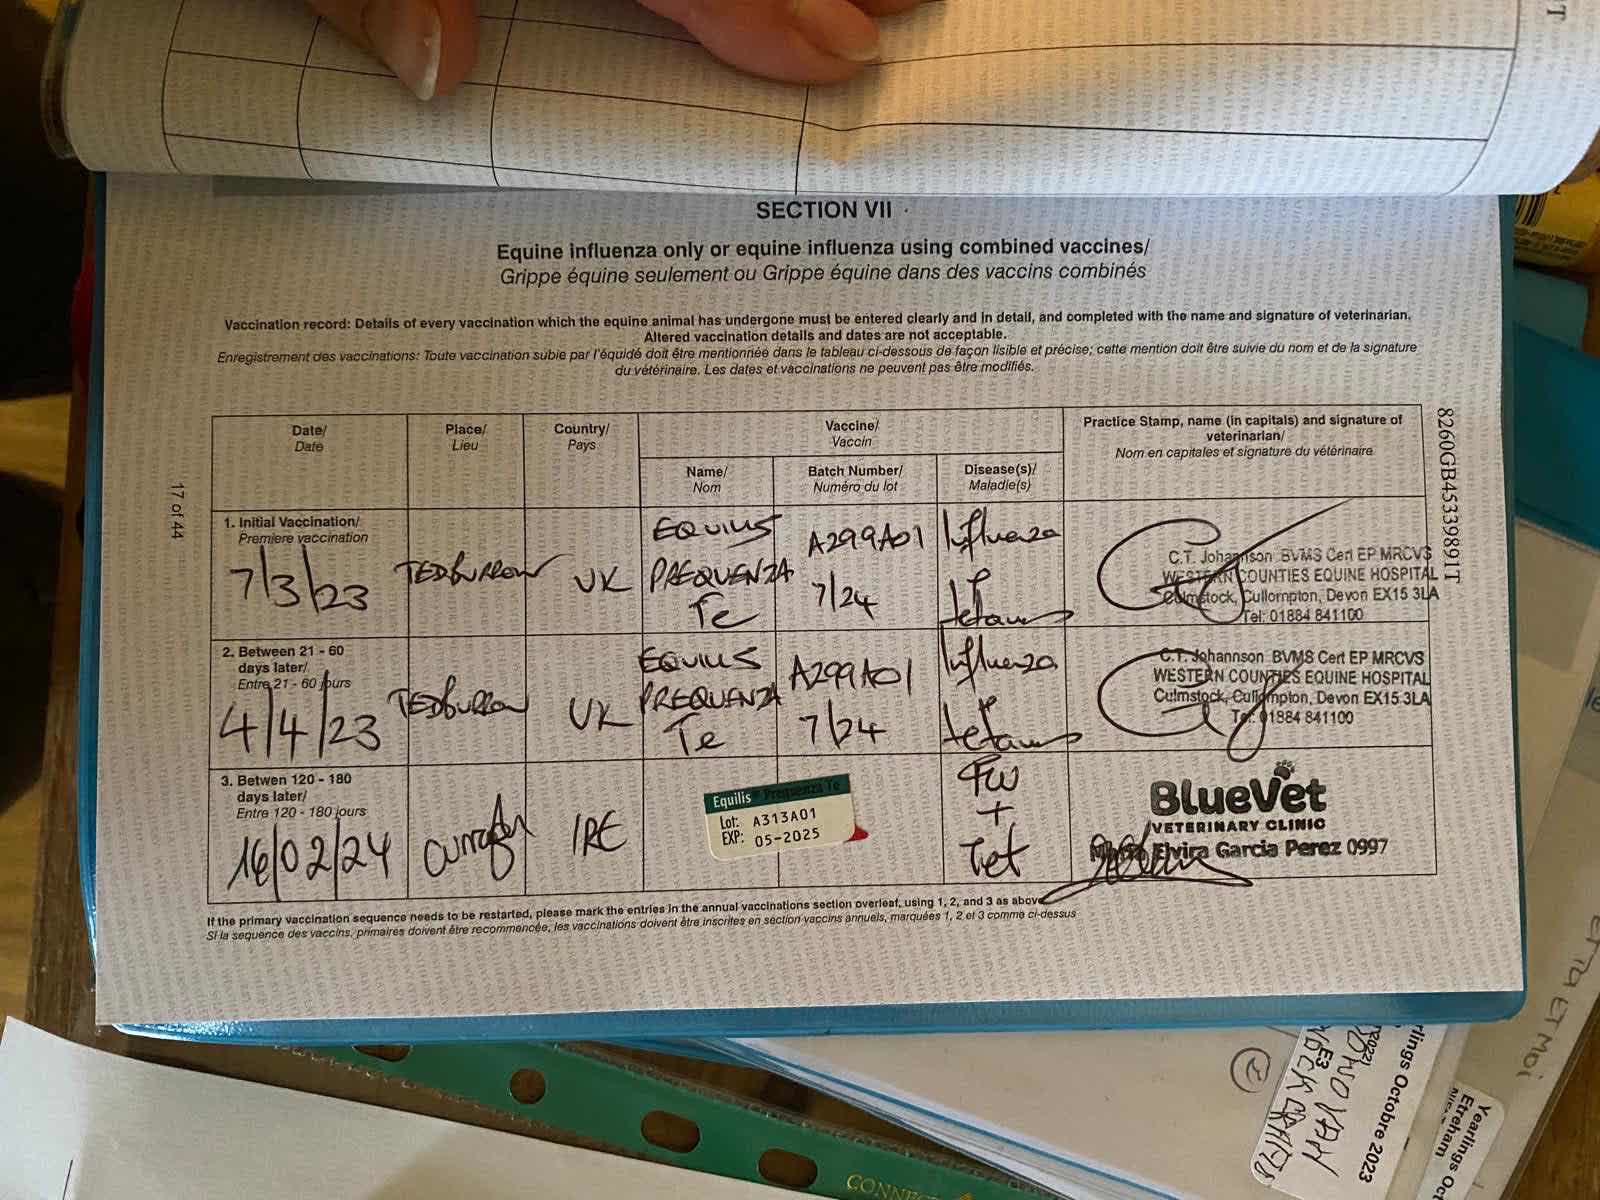 SECTION VII
Equine influenza only or equine influenza using combined vaccines/
Grippe équine seulement ou Grippe équine dans des vaccins combinés
Vaccination record: Details of every vaccination which the equine animal has undergone must be entered clearly and in detail, and completed with the name and signature of veterinarian.
Altered vaccination details and dates are not acceptable.
Enregistrement des vaccinations: Toute vaccination subie par l'équidé doit être mentionnée dans le tableau ci-dessous de façon lisible et précise; cette mention doit être suivie du nom et de la signature
du vétérinaire. Les dates et vaccinations ne peuvent pas être modifiés.
Date/
Date
Place/
Lieu
Country/
Pays
Vaccine/
Vaccin
Name/
Nom
Batch Number/
Numéro du lot
Disease(s)/
Maladie(s)
Practice Stamp, name (in capitals) and signature of
veterinarian/
Nom en capitales et signature du vétérinaire
1. Initial Vaccination/
Premiere vaccination
7/3/23
TEDBURROW
UK
EQUILIS
PREQUENZA
Te
A299A01
7/24
Influenza
tetanus
C.T. Johannson BVMS Cert EP MRCVS
WESTERN COUNTIES EQUINE HOSPITAL
Culmstock, Cullompton, Devon EX15 3LA
Tel: 01884 841100
2. Between 21 - 60
days later/
Entre 21 - 60 jours
4/4/23
TEDBURROW
UK
EQUILIS
PREQUENZA
Te
A299A01
7/24
Influenza
tetanus
C.T. Johannson BVMS Cert EP MRCVS
WESTERN COUNTIES EQUINE HOSPITAL
Culmstock, Cullompton, Devon EX15 3LA
Tel: 01884 841100
3. Betwen 120 - 180
days later/
Entre 120 - 180 jours
16/02/24
Curragh
IRE
Equilis Prequenza Te
Lot: A313A01
EXP: 05-2025
+
Tet
BlueVet
VETERINARY CLINIC
Elvira Garcia Perez 0997
If the primary vaccination sequence needs to be restarted, please mark the entries in the annual vaccinations section overleaf, using 1, 2, and 3 as above
Si la sequence des vaccins, primaires doivent être recommencée, les vaccinations doivent être inscrites en section vaccins annuels, marquées 1, 2 et 3 comme ci-dessus
17 of 44
8260GB45339891T
ET MOI
Yearlings Oct
Etreham
rlings Octobre 2023
E3
CONNEC